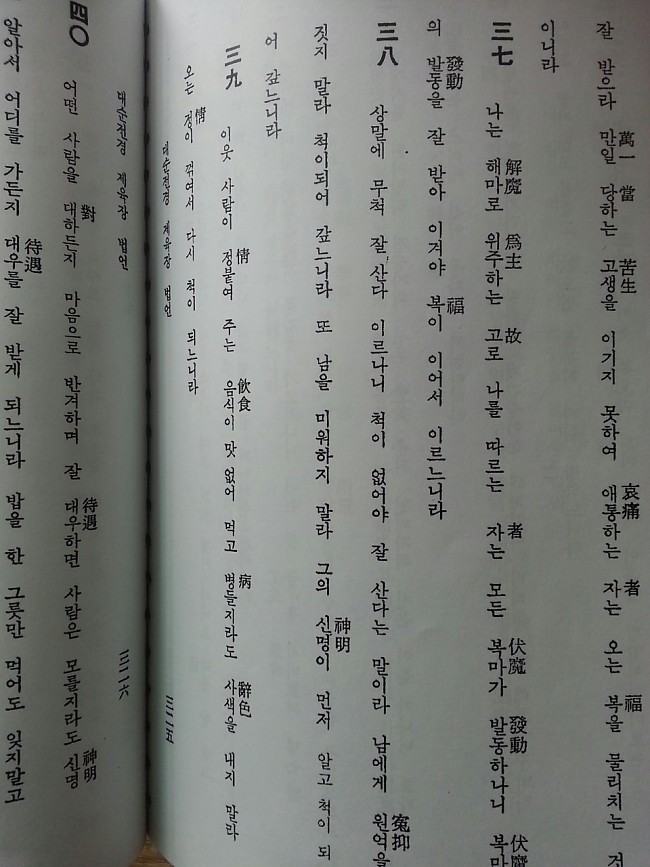 萬一 當 苦生 哀痛 者 福
잘 받으라 만일 당하는 고생을 이기지 못하여 애통하는 자는 오는 복을 물리치는
이니라
解魔 爲主 故 者 伏魔 發動 伏魔
三七 나는 해마로 위주하는 고로 나를 따르는 자는 모든 복마가 발동하나니 복마
發動 福
의 발동을 잘 받아 이겨야 복이 이어서 이르느니라
寃抑
三八 상말에 무척 잘 산다 이르나니 척이 없어야 잘 산다는 말이라 남에게 원억을
神明
짓지 말라 척이되어 갚느니라 또 남을 미워하지 말라 그의 신명이 먼저 알고 척이 되
어 갚느니라
情 飮食 病 辭色
三九 이웃 사람이 정붙여 주는 음식이 맛 없어 먹고 병들지라도 사색을 내지 말라
情
오는 정이 꺾여서 다시 척이 되느니라
대순전경 제육장 법언 三二五
대순전경 제육장 법언 三二六
對 待遇 神明
四〇 어떤 사람을 대하든지 마음으로 반겨하며 잘 대우하면 사람은 모를지라도 신명
待遇
알아서 어디를 가든지 대우를 잘 받게 되느니라 밥을 한 그릇만 먹어도 잊지말고